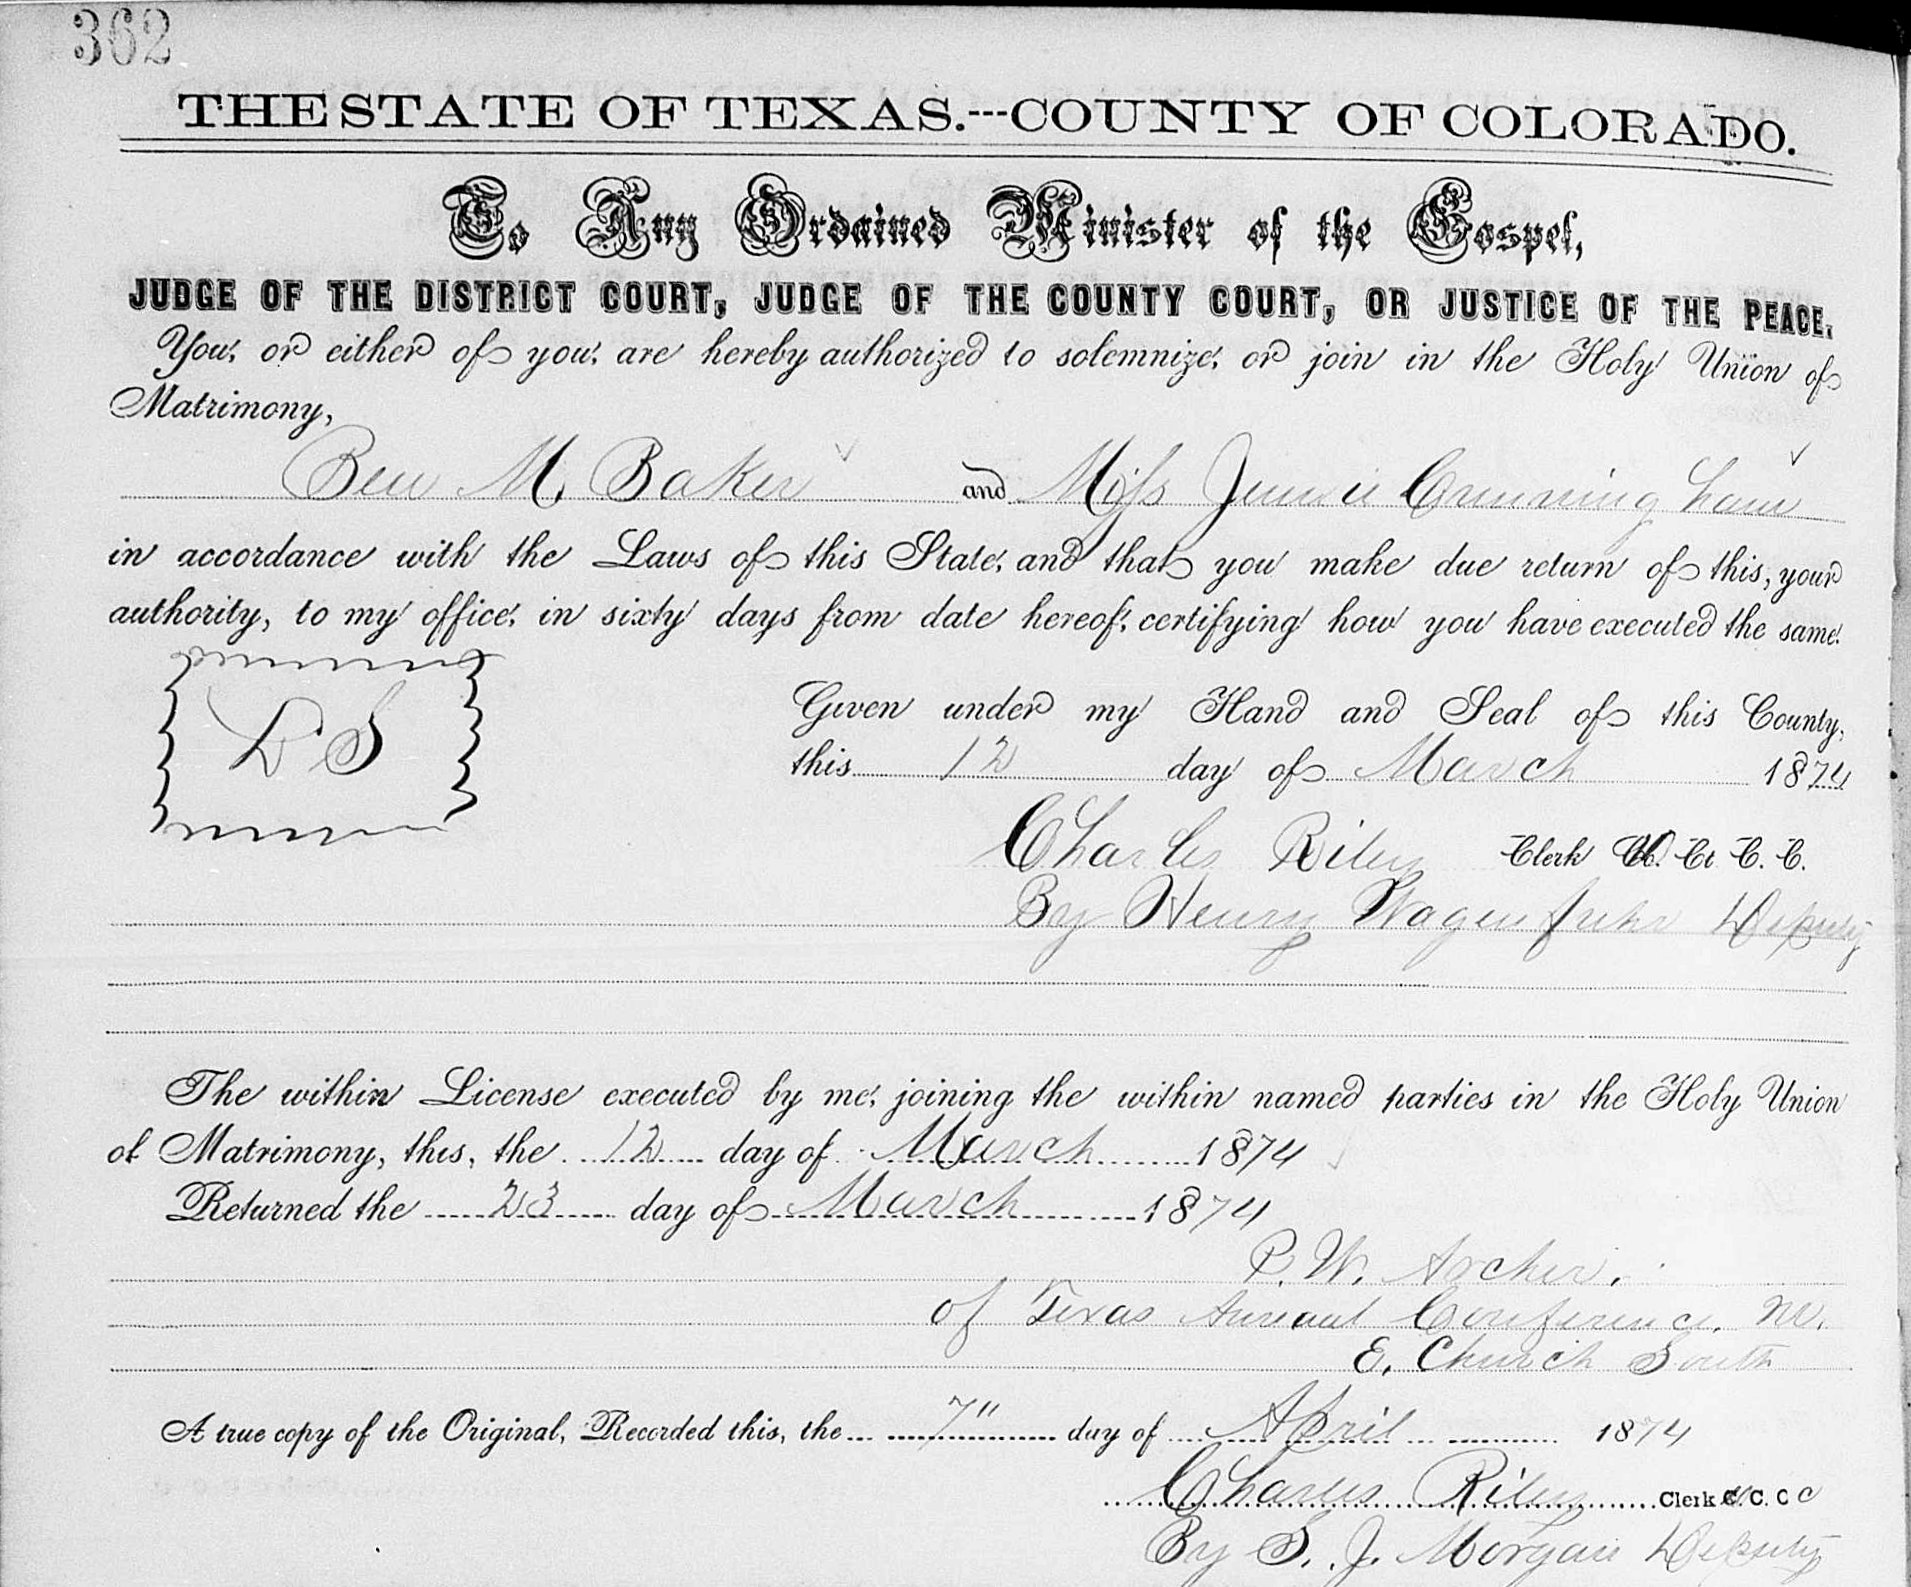 362
THE STATE OF TEXAS.---COUNTY OF COLORADO.
To Any Ordained Minister of the Gospel,
JUDGE OF THE DISTRICT COURT, JUDGE OF THE COUNTY COURT, OR JUSTICE OF THE PEACE.
You, or either of you, are hereby authorized to solemnize, or join in the Holy Union of
Matrimony,
Ben M. Baker and Miss Jennie Cunningham
in accordance with the Laws of this State, and that you make due return of this, your
authority, to my office, in sixty days from date hereof, certifying how you have executed the same.
L S
Given under my Hand and Seal of this County,
this 12 day of March 1874
Charles Riley Clerk Ct C. C.
By Henry Wagenfuhr Deputy
The within License executed by me, joining the within named parties in the Holy Union
of Matrimony, this, the 12 day of March 1874
Returned the 23 day of March 1874
P. W. Archer.
of Texas Annual Conference, M.
E. Church South
A true copy of the Original, Recorded this, the 7" day of April 1874
Charles Riley Clerk C. C C
By S. J. Morgan Deputy